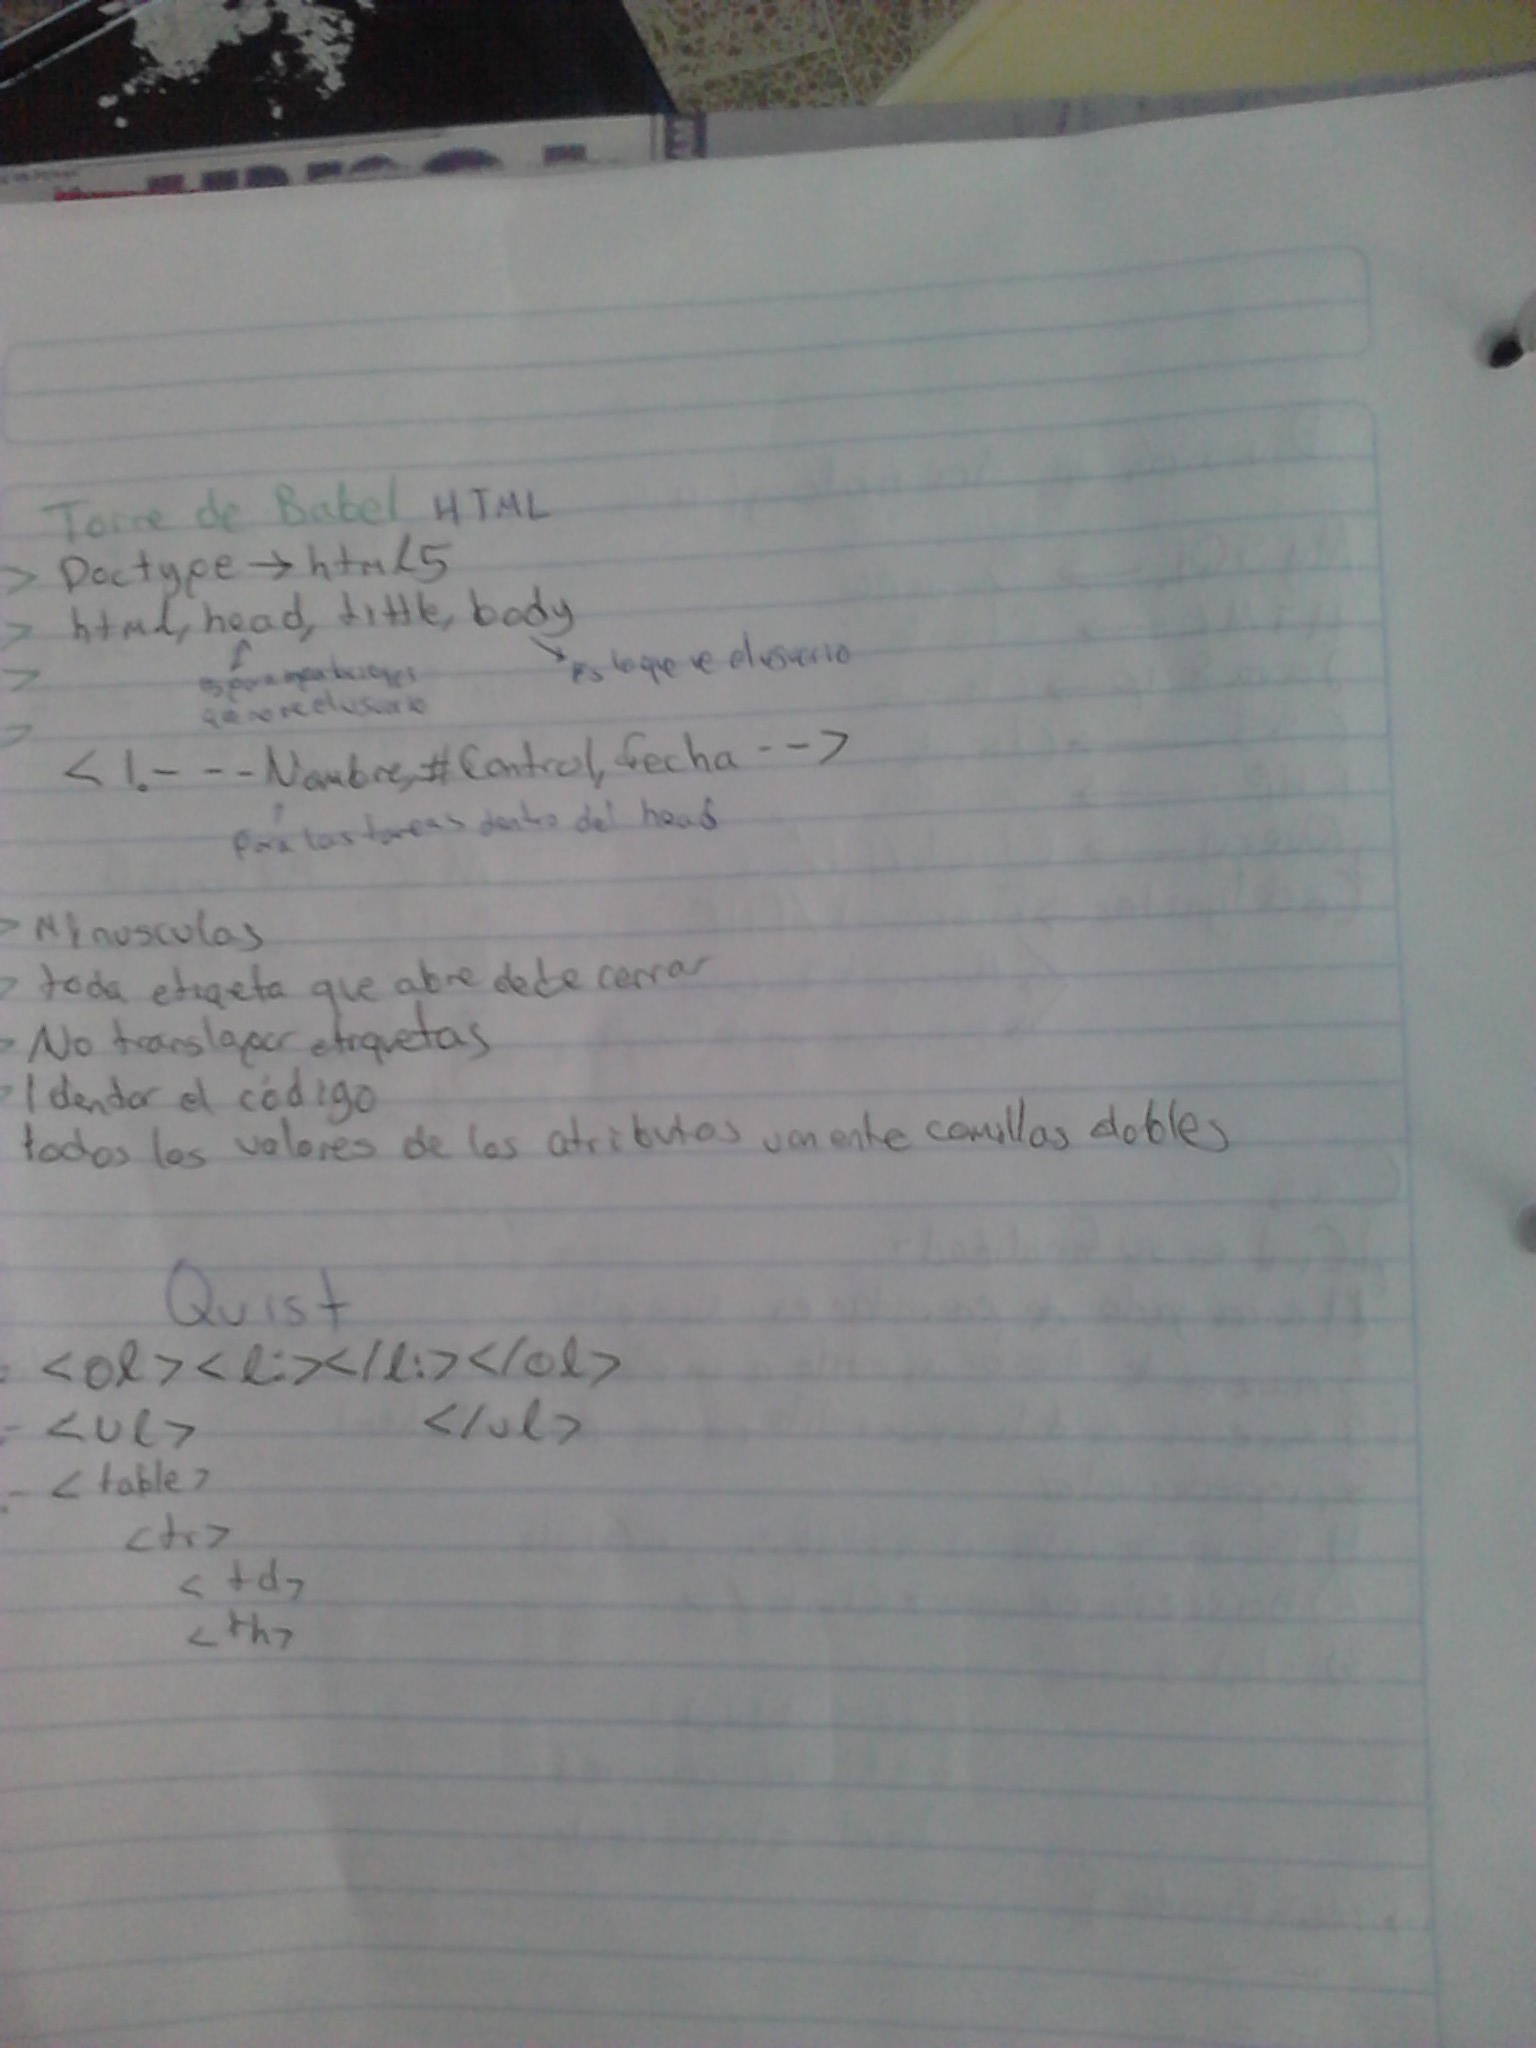 Torre de Babel HTML
> Doctype → html5
> html, head, tittle, body
> es para
es lo que ve el usuario
> que no ve el usuario
<!- - - Nombre, #Control, fecha - - >
para las tareas dentro del head
> Minusculas
> toda etiqeta que abre debe cerrar
> No translapar etiquetas
> Identar el código
todos los valores de los atributos van entre comillas dobles
Quist
<ol><li></li></ol>
- <ul> </ul>
- <table>
<tr>
<td>
<th>